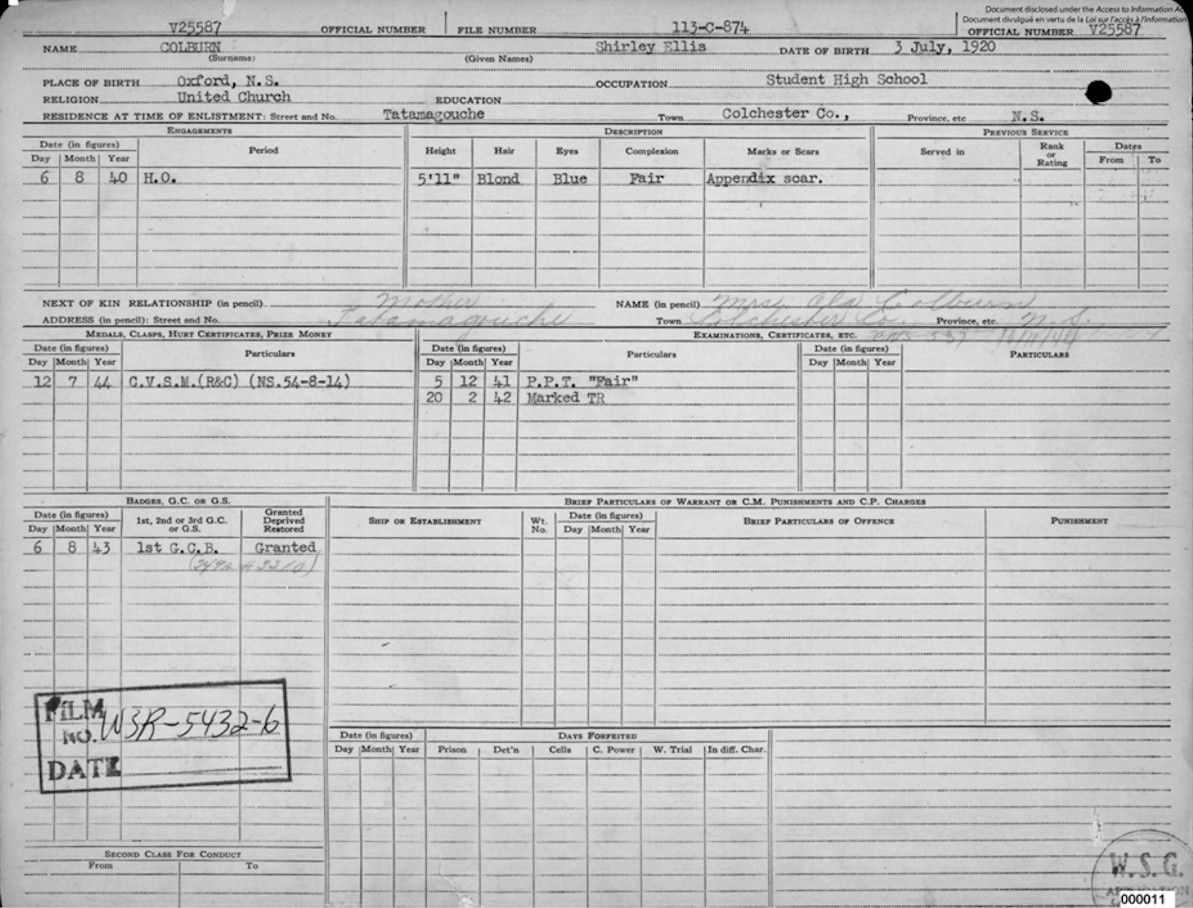 Document disclosed under the Access to Information Act
Document divulgué en vertu de la Loi sur l'accès à l'information
V25587 OFFICIAL NUMBER FILE NUMBER 113-C-874 OFFICIAL NUMBER V25587
NAME COLBURN Shirley Ellis DATE OF BIRTH 3 July, 1920
(Surname) (Given Names)
PLACE OF BIRTH Oxford, N.S. OCCUPATION Student High School
RELIGION United Church EDUCATION
RESIDENCE AT TIME OF ENLISTMENT: Street and No. Tatamagouche Town Colchester Co., Province, etc N.S.
ENGAGEMENTS DESCRIPTION PREVIOUS SERVICE
Date (in figures) Period Height Hair Eyes Complexion Marks or Scars Served in Rank or Rating Dates
Day Month Year From To
6 8 40 H.O. 5'11" Blond Blue Fair Appendix scar.
NEXT OF KIN RELATIONSHIP (in pencil) Mother NAME (in pencil) Mrs. Ola Colburn
ADDRESS (in pencil): Street and No. Tatamagouche Town Colchester Co. Province, etc. N.S.
MEDALS, CLASPS, HURT CERTIFICATES, PRIZE MONEY EXAMINATIONS, CERTIFICATES, ETC.
Date (in figures) Particulars Date (in figures) Particulars Date (in figures) PARTICULARS
Day Month Year Day Month Year Day Month Year
12 7 44 C.V.S.M.(R&C) (NS.54-8-14) 5 12 41 P.P.T. "Fair"
20 2 42 Marked TR
BADGES, G.C. OR G.S. BRIEF PARTICULARS OF WARRANT OR C.M. PUNISHMENTS AND C.P. CHARGES
Date (in figures) 1st, 2nd or 3rd G.C. or G.S. Granted Deprived Restored SHIP OR ESTABLISHMENT Wt. No. Date (in figures) BRIEF PARTICULARS OF OFFENCE PUNISHMENT
Day Month Year Day Month Year
6 8 43 1st G.C.B. Granted
FILM NO. W3R-5432-6
DATE
Date (in figures) DAYS FORFEITED
Day Month Year Prison Det'n Cells C. Power W. Trial In diff. Char.
SECOND CLASS FOR CONDUCT
From To
W.S.G.
000011